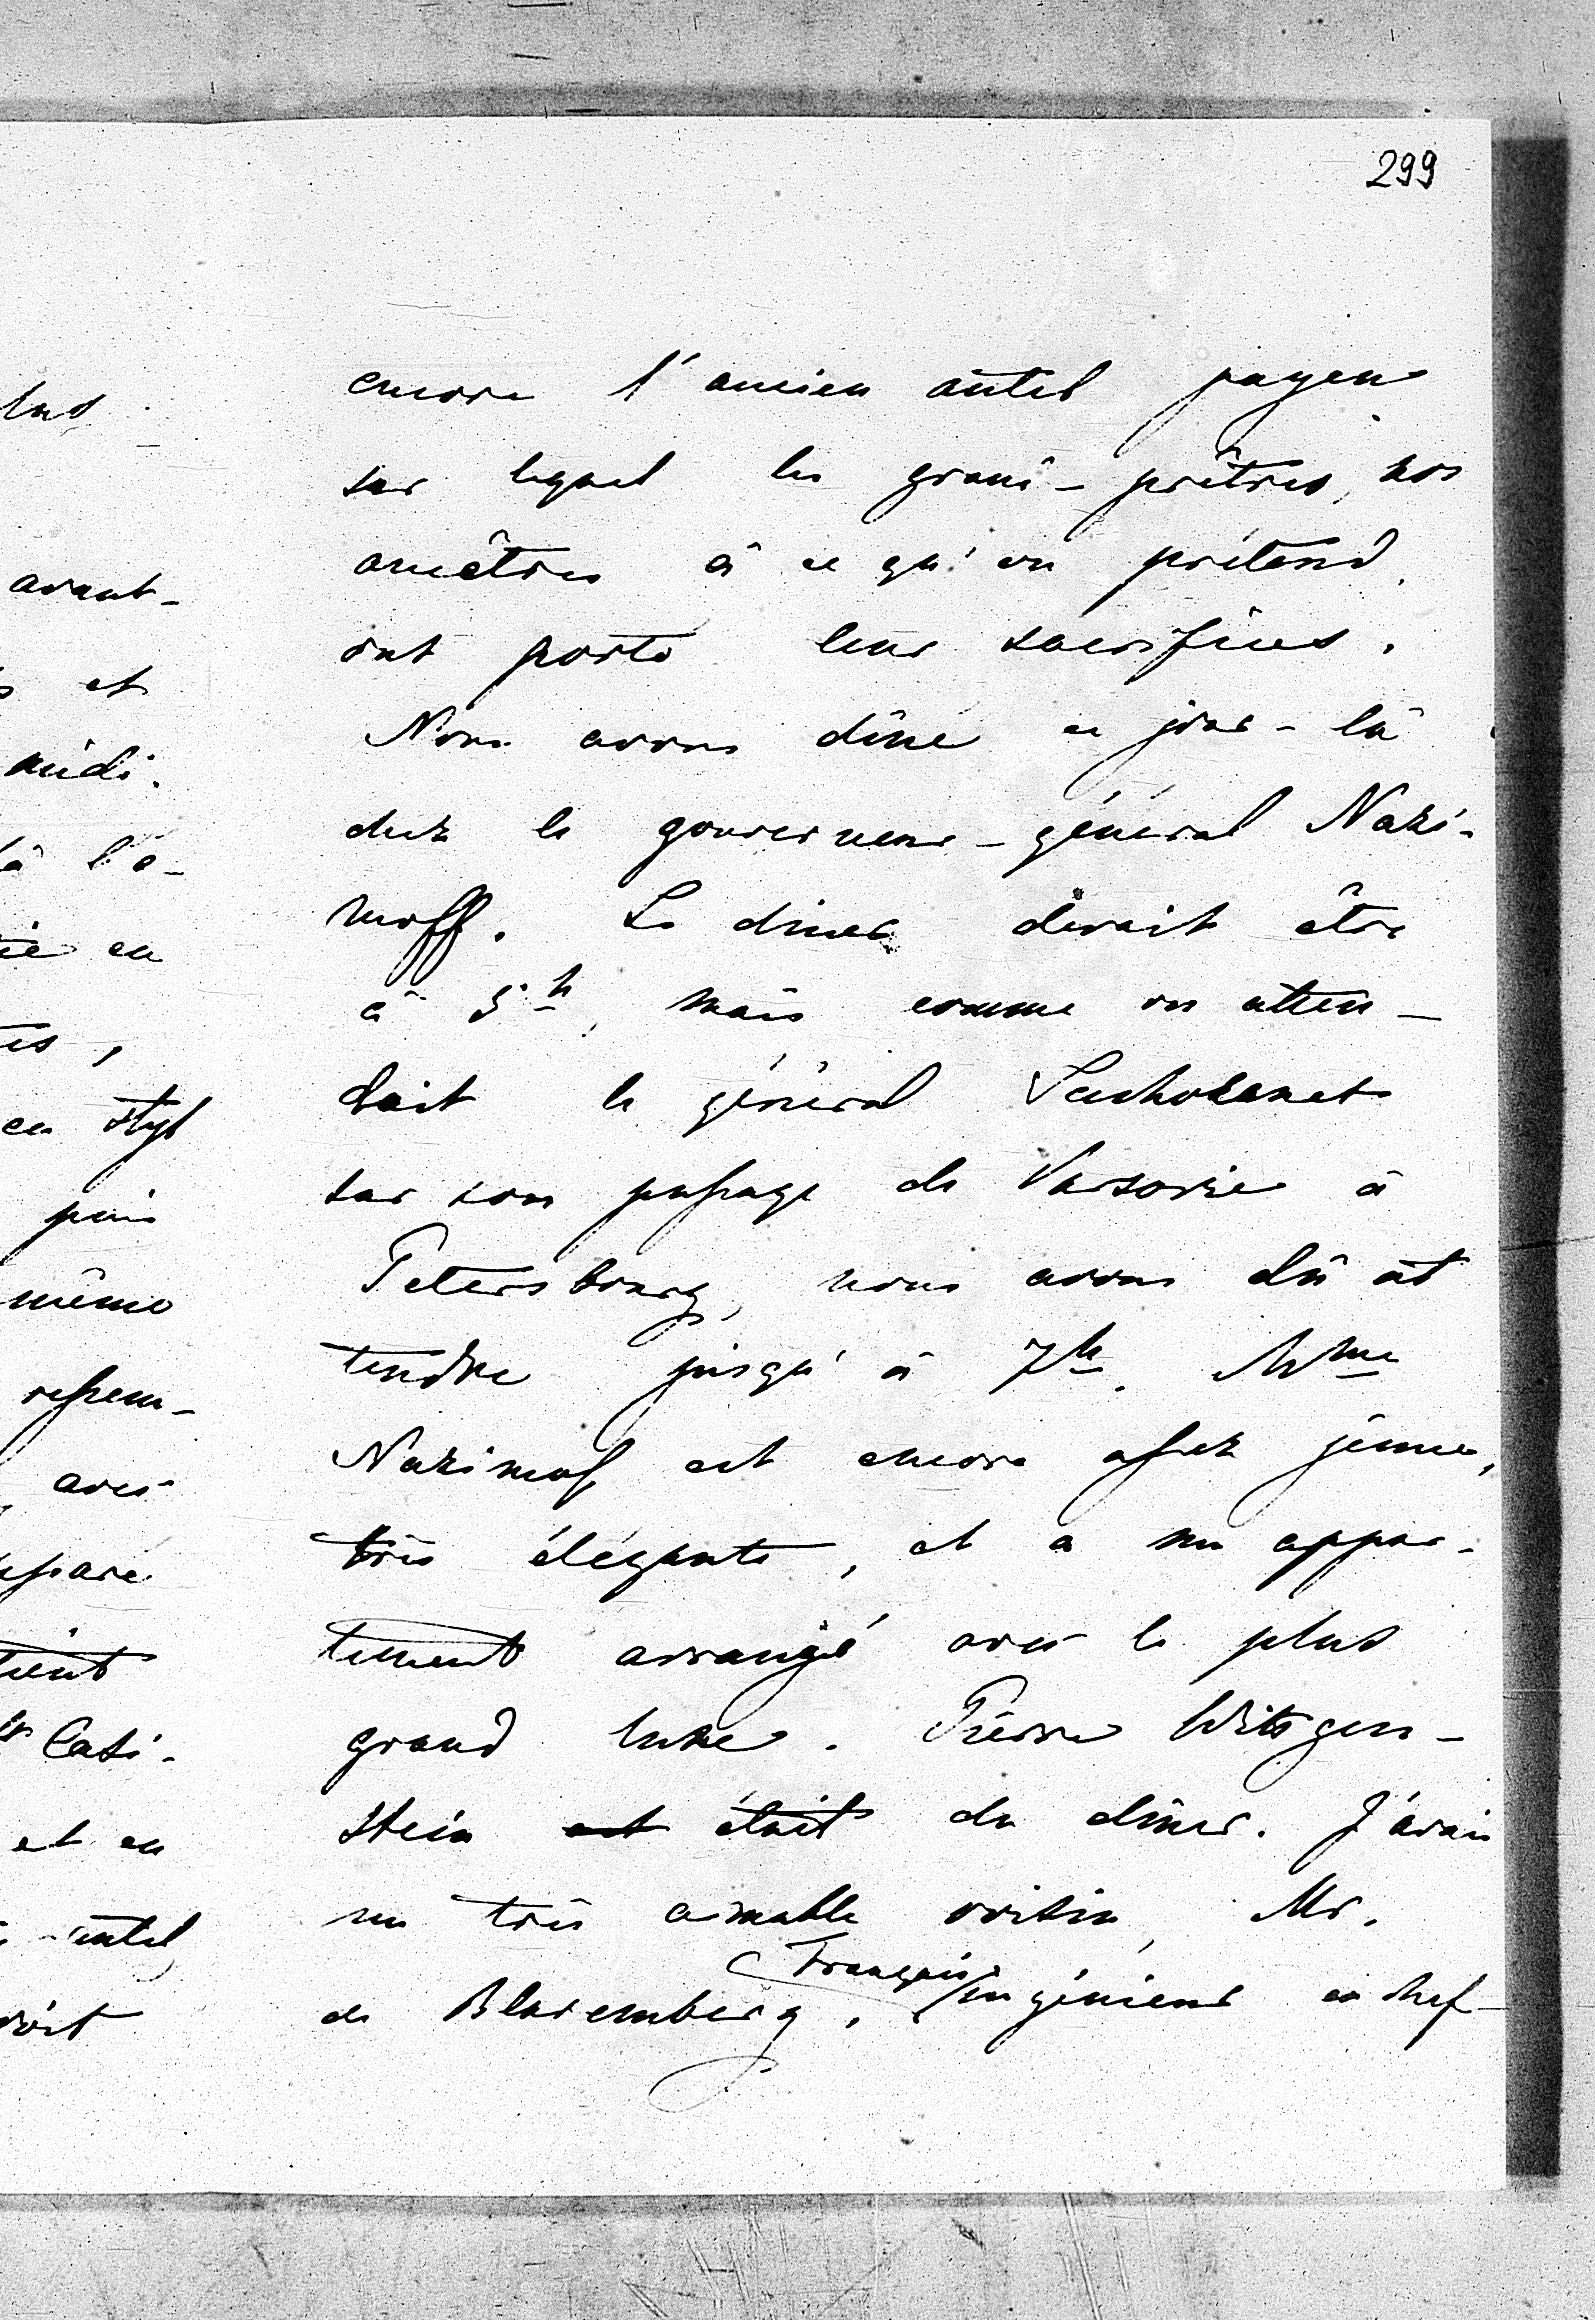 299
encore l'ancien autel payen
sur lequel les grand-prêtres, nos
ancêtres à ce qu'on prétend,
ont porté leur sacrifices.
Nous avons dîné ce jour-là
chez le gouverneur-général Nazi-
moff. Le diner devait être
à 5 h, mais comme on atten-
dait le général
sur son passage de Varsovie à
Petersbourg, nous avons dû at
tendre jusqu'à 7h. Mme
Nazimof est encore assez jeune,
très élégante, et a un appar-
tement arrangé avec le plus
grand luxe. Pierre Wittgen-
stein est était du dîner. J'avais
un très aimable voisin, Mr.
Français
de Blaremberg, ingénieur en chef
lus
avant-
et
midi.
là l'é-
en
tes,
en style
puis
même
ressem-
avec
tient
Casi-
et en
autel